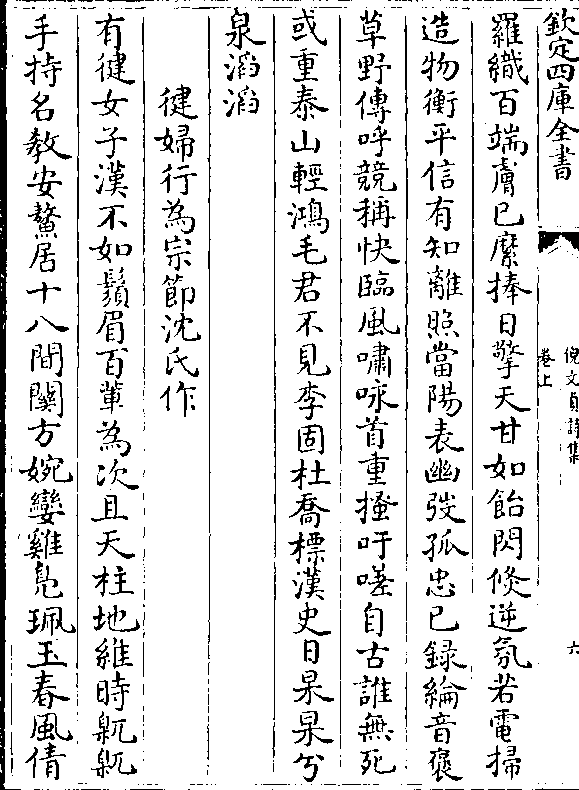 欽定四庫全書
倪文貞詩集
卷上
六
羅織百端膚已糜捧日擎天甘如飴閃倐逆氛若電掃
造物衡平信有知離照當陽表幽弢孤忠已録綸音褒
草野傳呼競稱快臨風嘯咏首重搔吁嗟自古誰無死
或重泰山輕鴻毛君不見李固杜喬標漢史日杲杲兮
泉滔滔
徤婦行為宗節沈氏作
有徤女子漢不如鬚眉百輩為次且天柱地維時臲臲
手持名教安鰲居十八間關方婉孌雞鳧珮玉春風倩